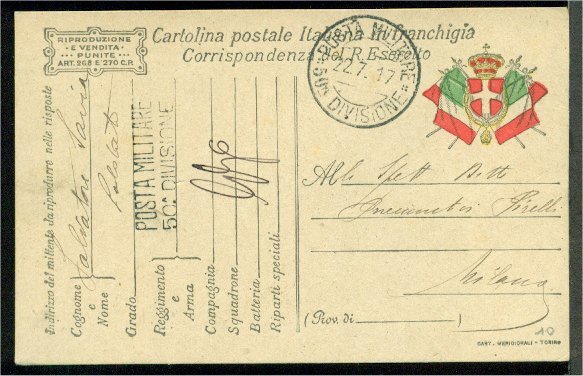 RIPRODUZIONE
E VENDITA
PUNITE
ART. 268 E 270 C.P.
Cartolina postale Italiana in franchigia
Corrispondenza del R. Esercito
POSTA MILITARE
22.7.17
50ª DIVISIONE
Indirizzo del mittente da riprodurre nelle risposte
Cognome e Nome Salvatore
Grado Soldato
POSTA MILITARE
50ª DIVISIONE
Reggimento e Arma
Compagnia
Squadrone
Batteria
Riparti speciali
Alla Spett Ditt
Pneumatici Pirelli
Milano
(Prov. di )
10
CART. MERIDIONALI - TORINO